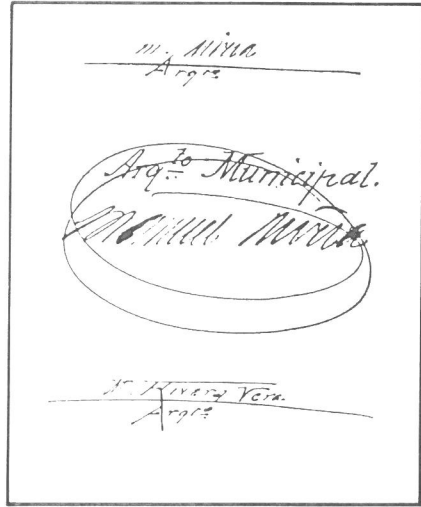 M. Mina
Arqto
Arqto Municipal.
Manuel
Rivero Vera.
Arqto